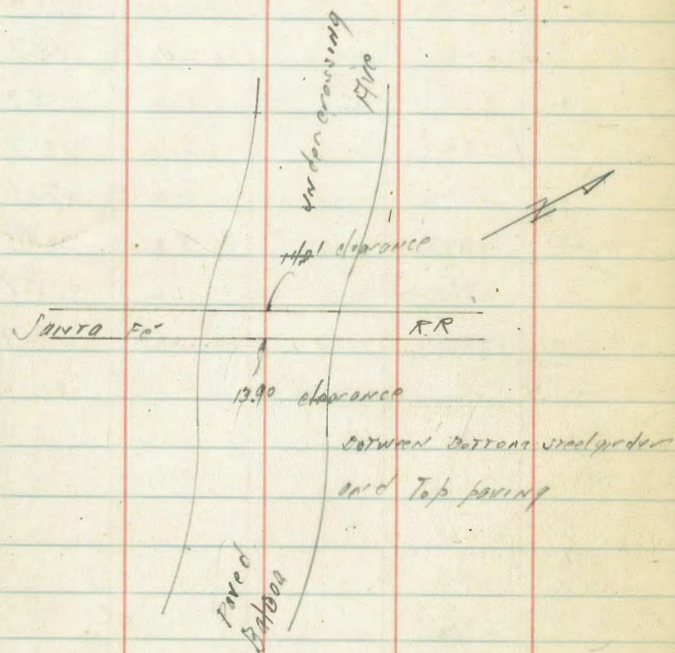 undercrossing
Ave
clearance
Santa Fé R.R
13.90 clearance
Between Bottom steel girder
and Top paving
Paved
Balboa
N